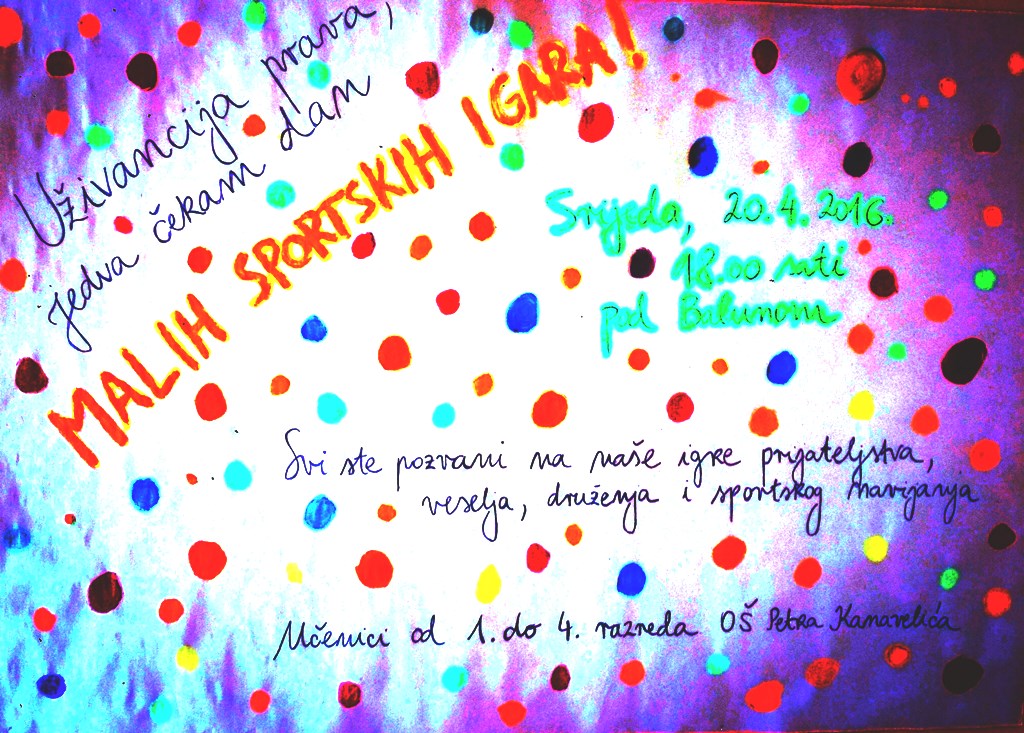 Uživancija prava,
jedva čekam dan
MALIH SPORTSKIH IGARA!
Srijeda, 20.4.2016.
18.00 sati
pod Balunom
Svi ste pozvani na naše igre prijateljstva,
veselja, druženja i sportskog navijanja
Učenici od 1. do 4. razreda OŠ Petra Kanavelića